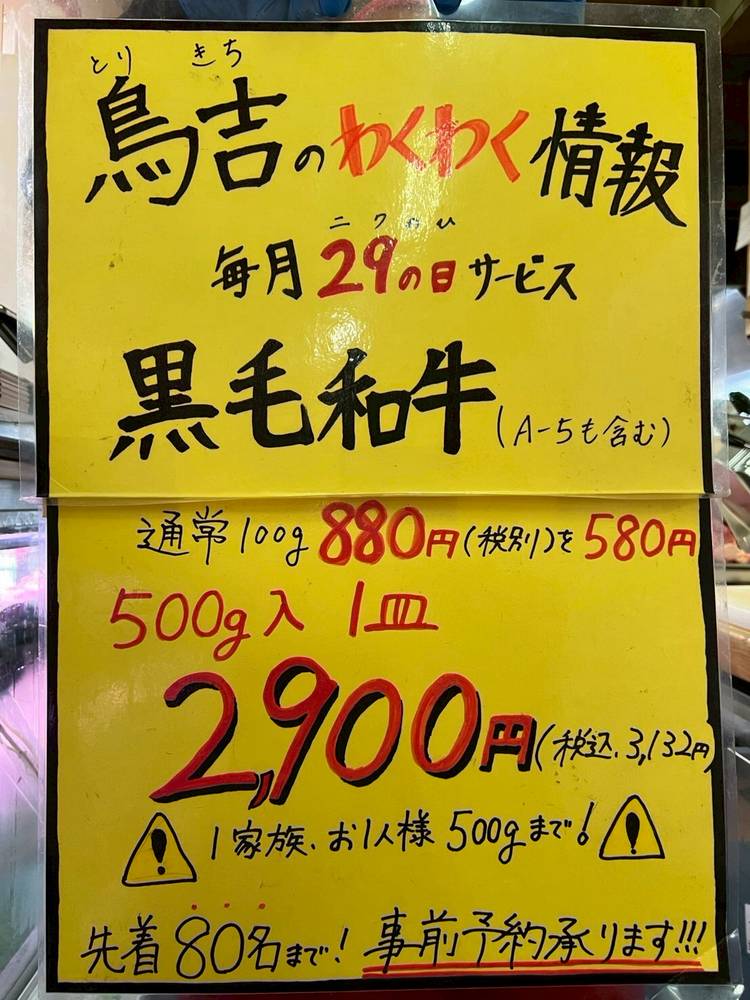 とりきち
鳥吉のわくわく情報
ニクのひ
毎月29の日サービス
黒毛和牛(A-5も含む)
通常100g 880円(税別)を580円
500g入 1皿
2,900円(税込、3,132円)
1家族、お1人様 500gまで!
先着80名まで! 事前予約承ります!!!